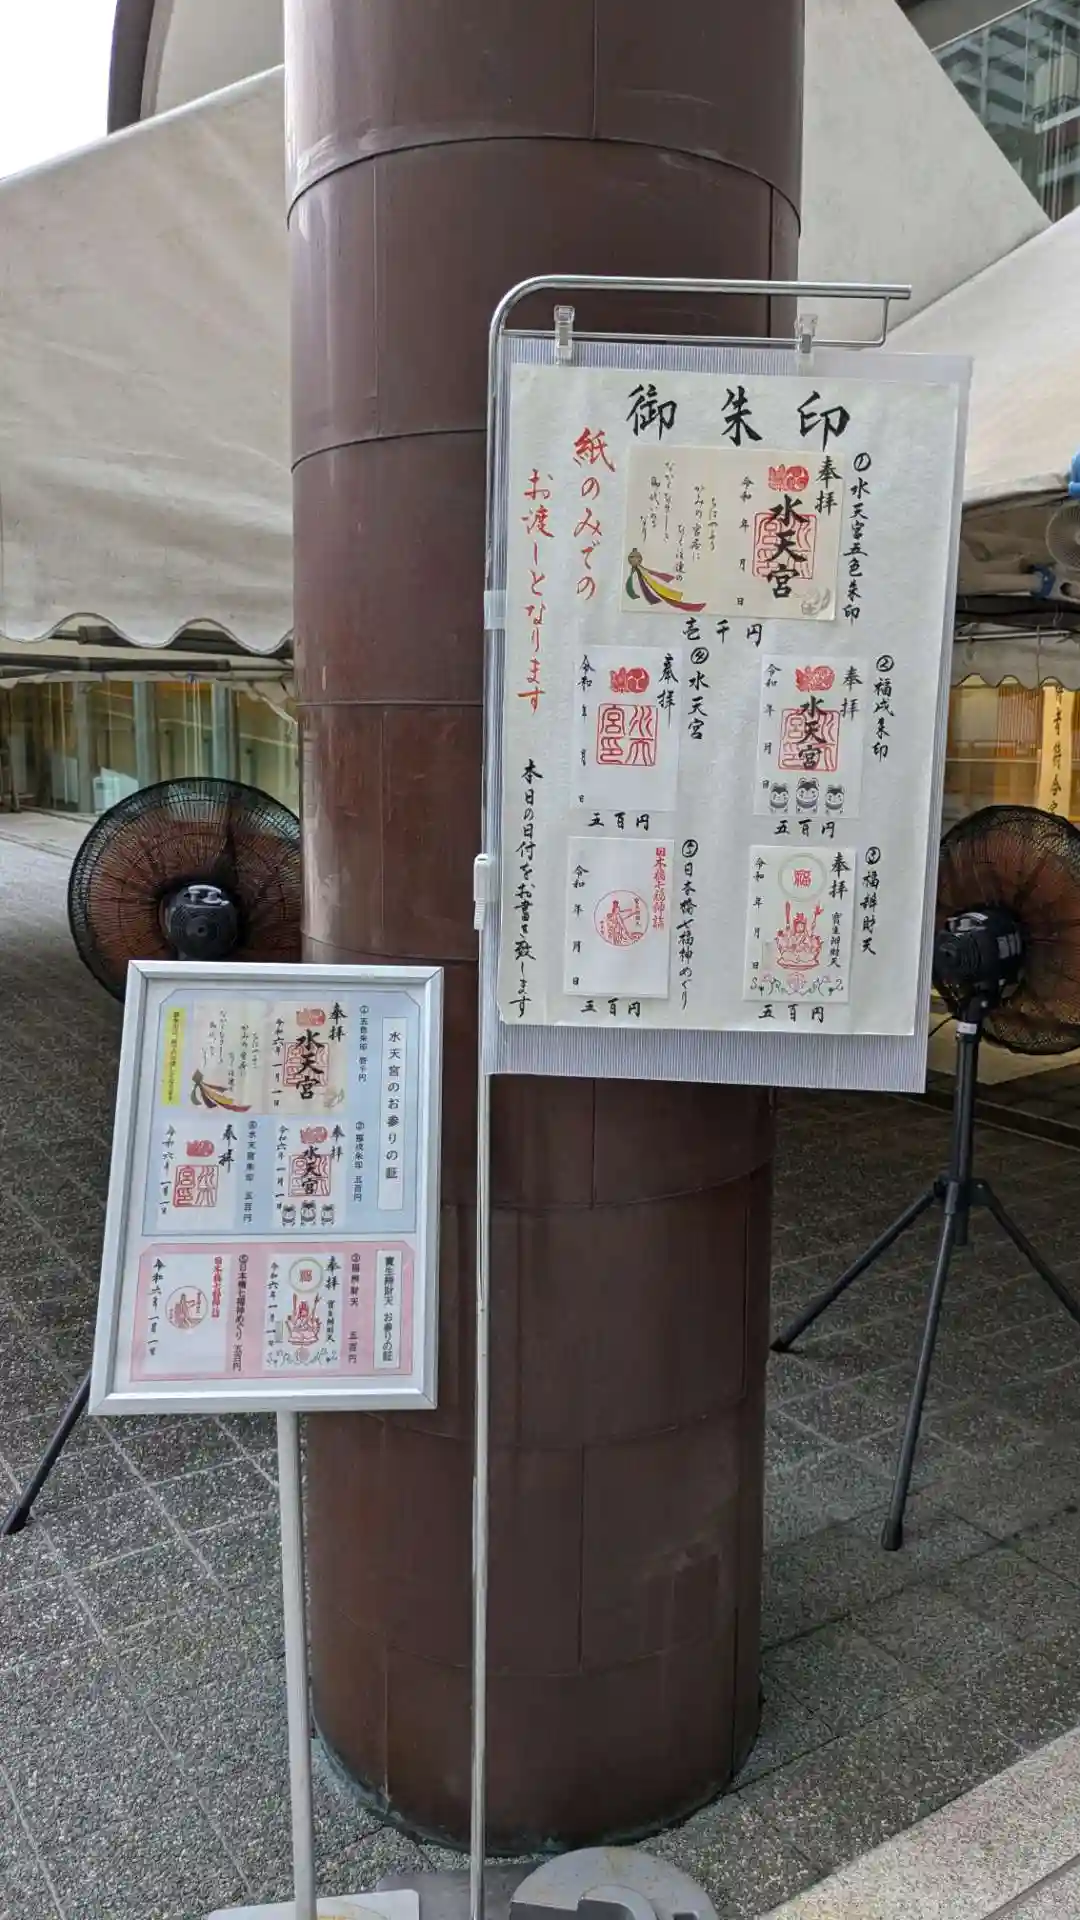 御朱印
①水天宮五色朱印
奉拝
水天宮
令和 年 月 日
壱千円
紙のみでの
お渡しとなります
②福戌朱印
奉拝
水天宮
令和 年 月 日
五百円
④水天宮
奉拝
令和 年 月 日
五百円
③福辨財天
奉拝
寳生辨財天
福
令和 年 月 日
五百円
⑤日本橋七福神めぐり
日本橋七福神詣
令和 年 月 日
五百円
本日の日付をお書き致します
水天宮のお参りの証
①五色朱印 壱千円
奉拝
水天宮
令和六年一月一日
②福戌朱印 五百円
奉拝
水天宮
令和六年一月一日
④水天宮朱印 五百円
奉拝
令和六年一月一日
寳生辨財天 お参りの証
③福辨財天 五百円
奉拝
寳生辨財天
福
令和六年一月一日
⑤日本橋七福神めぐり 五百円
日本橋七福神詣
令和六年一月一日